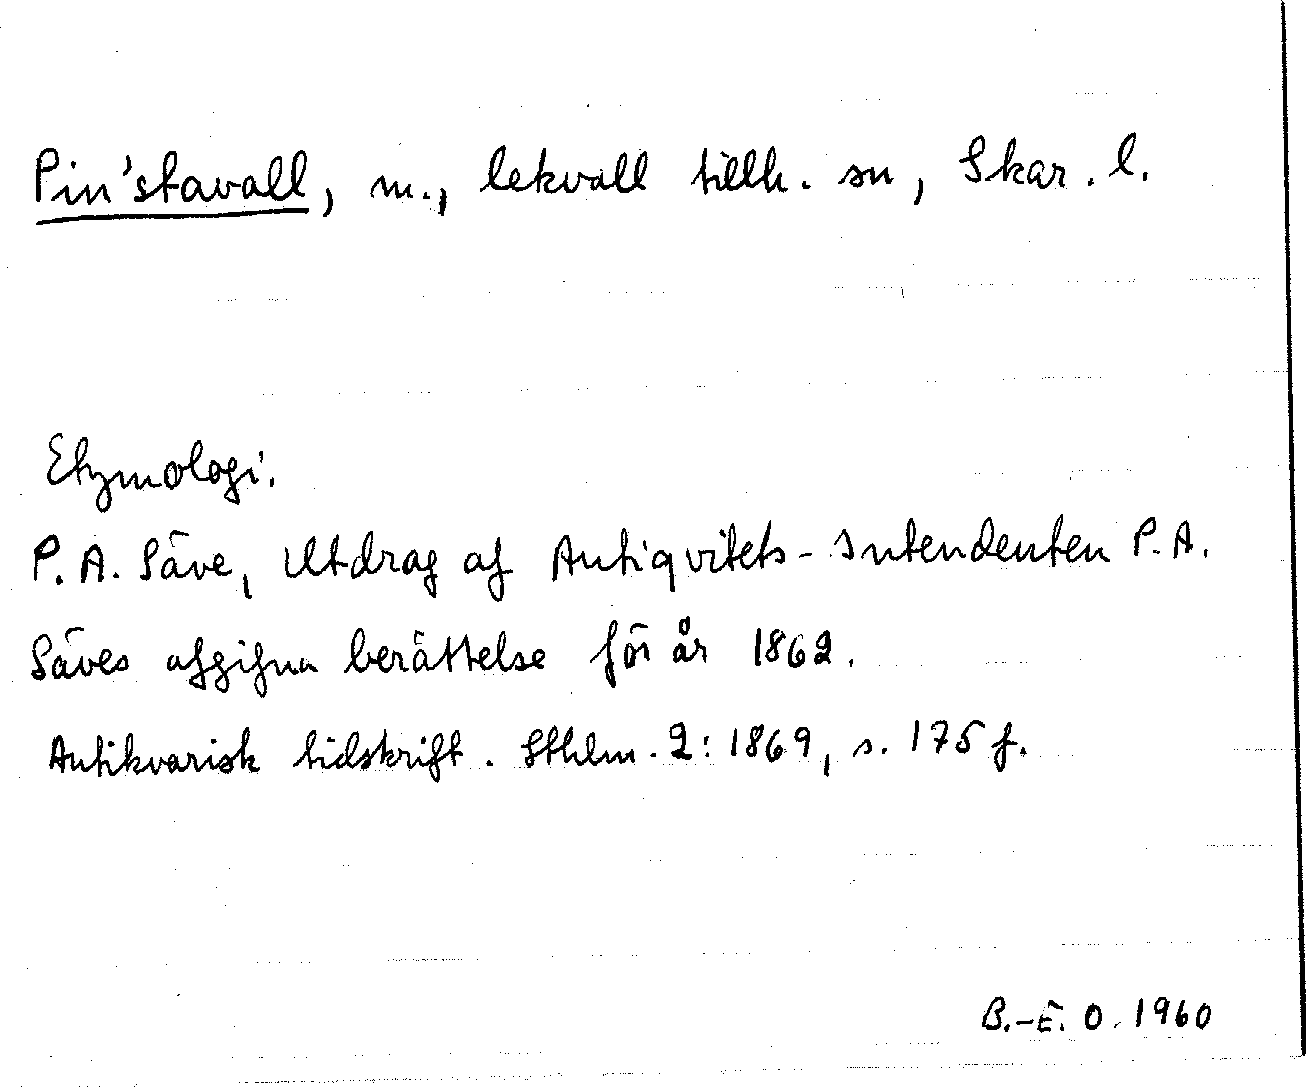 Pin'stavall, m., lekvall tillh. sn, Skar. l.
Etymologi.
P. A. Säve, Utdrag af Antiqvitets-Intendenten P. A.
Säves afgifna berättelse för år 1862.
Antikvarisk tidskrift. Sthlm. 2: 1869, s. 175 f.
B.-E. O. 1960